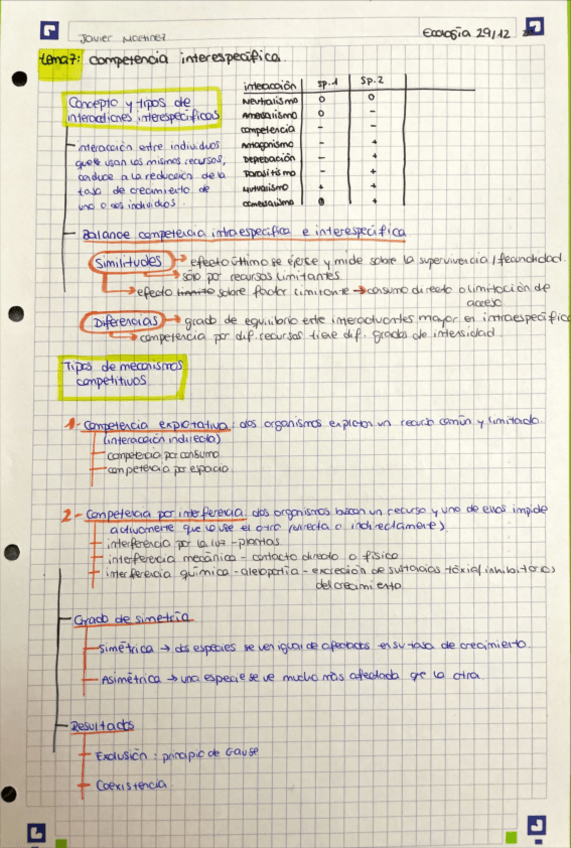 Javier Martínez
Ecología 29/12
tema7: competencia interespecífica.
Concepto y tipos de interacciones interespecíficas
interacción sp.1 sp.2
Neutralismo 0 0
Amensalismo 0 -
competencia - -
Antagonismo - +
Depredación - +
Parasitismo - +
Mutualismo + +
comensalismo 0 +
interacción entre individuos
que usan los mismos recursos,
conduce a la reducción de la
tasa de crecimiento de
uno o los individuos.
Balance competencia intraespecífica e interespecífica
Similitudes → efecto último se ejerce y mide sobre la supervivencia / fecundidad.
→ sólo por recursos limitantes
→ efecto sobre factor limitante → consumo directo o limitación de
acceso
Diferencias → grado de equilibrio entre interactuantes mayor en intraespecífica
→ competencia por dif. recursos tiene dif. grados de intensidad.
Tipos de mecanismos
competitivos
1- Competencia explotativa: dos organismos explotan un recurso común y limitado.
(interacción indirecta)
- competencia por consumo
- competencia por espacio
2- Competencia por interferencia: dos organismos buscan un recurso y uno de ellos impide
activamente que lo use el otro (directa o indirectamente)
- interferencia por la luz - plantas
- interferencia mecánica - contacto directo o físico
- interferencia química - alelopatía - excreción de sustancias tóxicas/inhibitorias
del crecimiento
Grado de simetría
- Simétrica → dos especies se ven igual de afectadas en su tasa de crecimiento.
- Asimétrica → una especie se ve mucho más afectada que la otra
Resultados
- Exclusión: principio de Gause
- Coexistencia